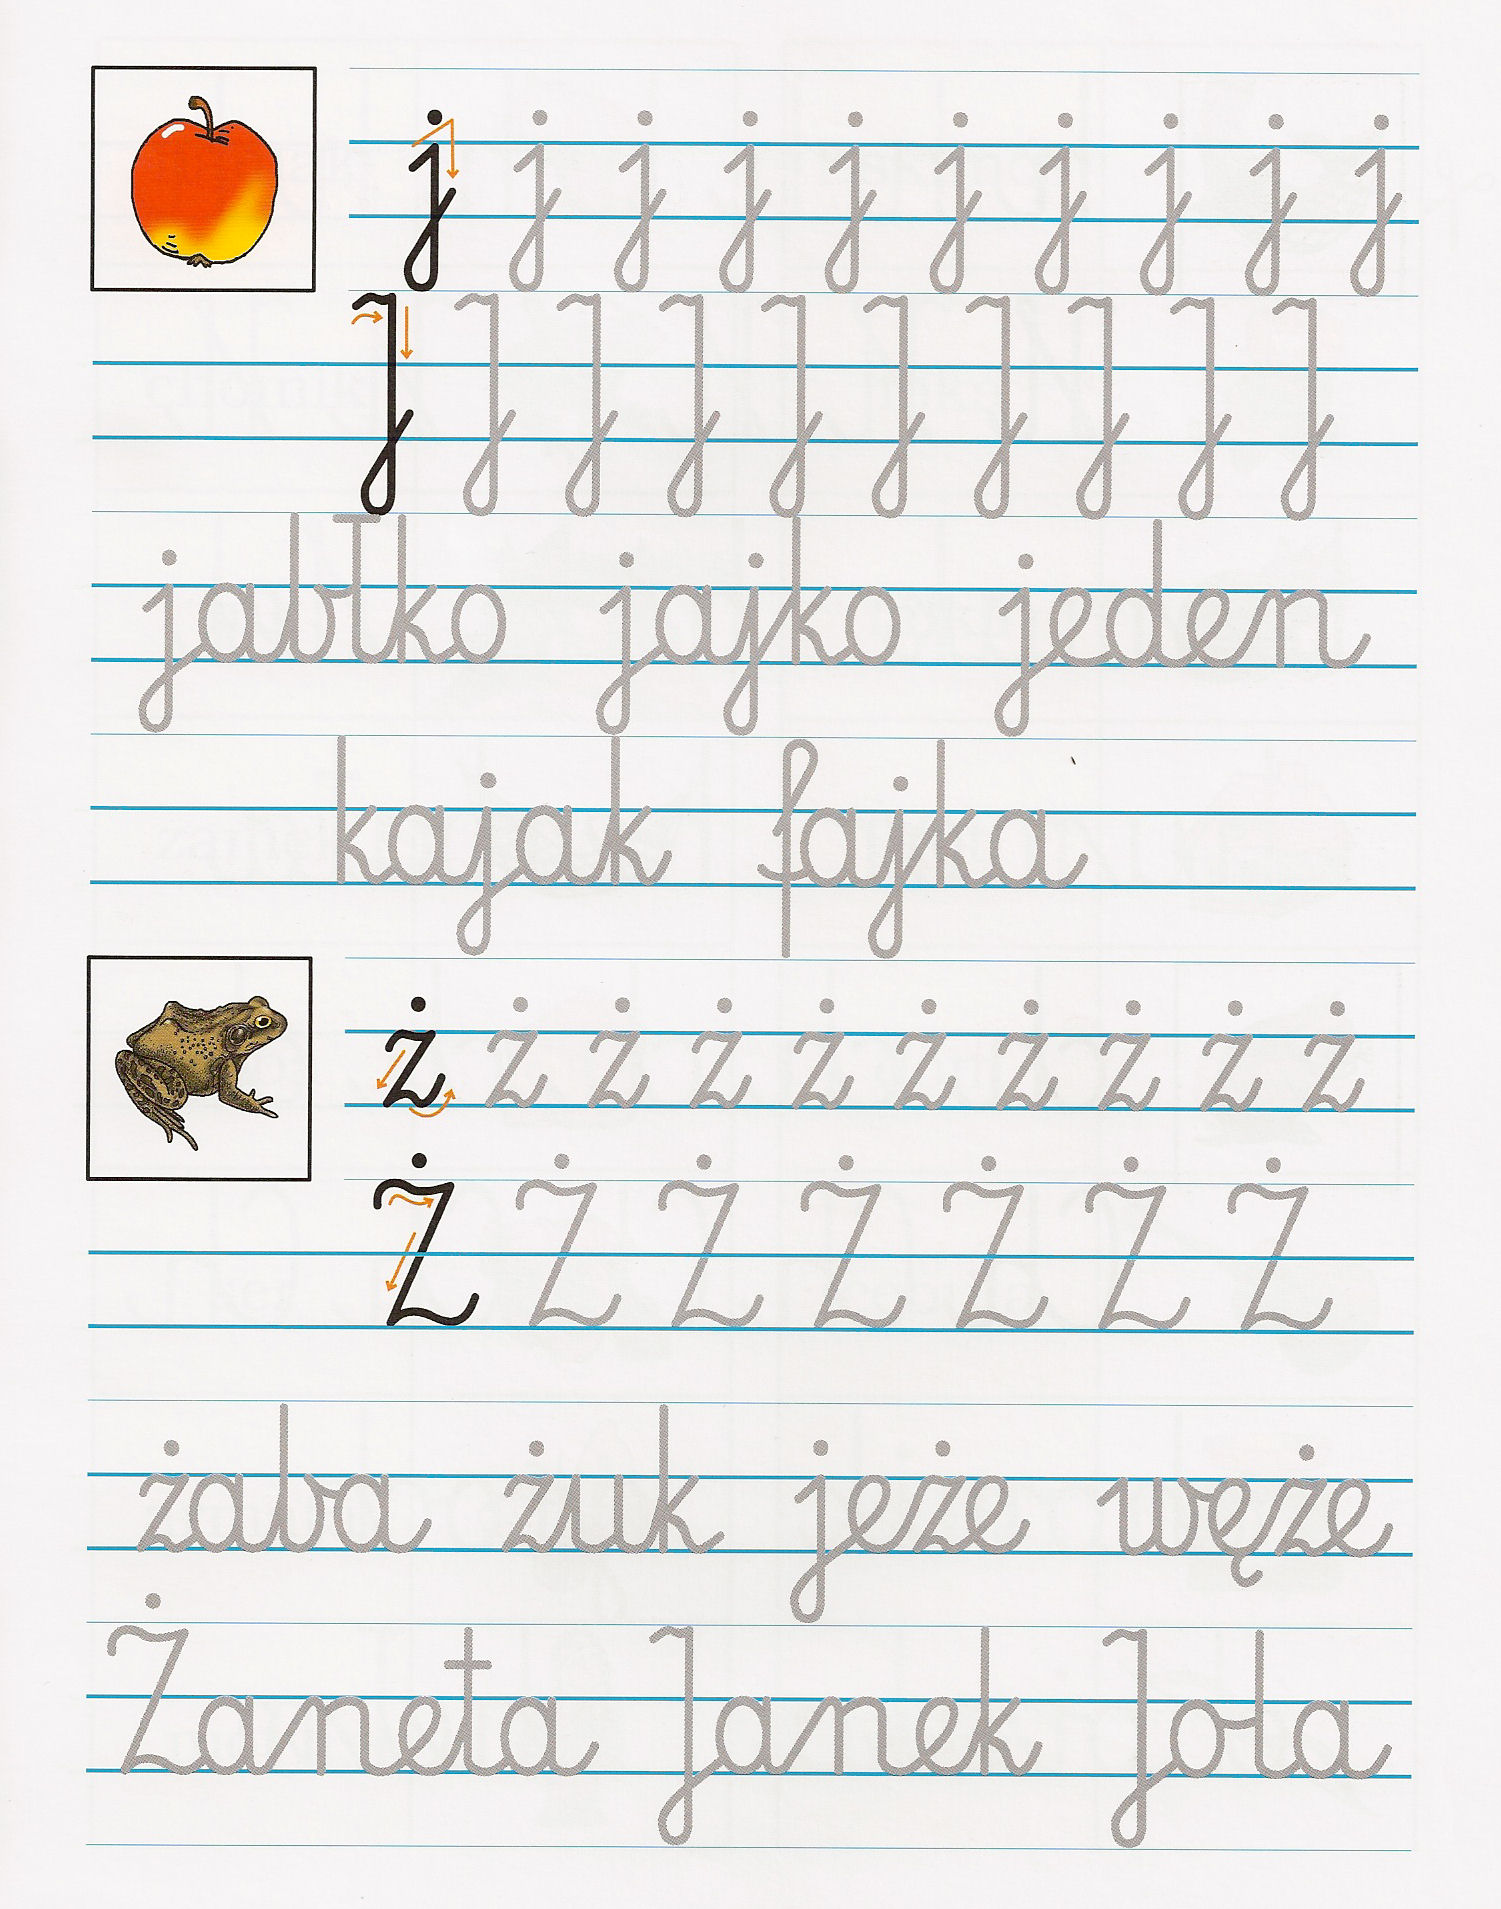 j j j j j j j j j j
J J J J J J J J J J
jabłko jajko jeden
kajak fajka
ż ż ż ż ż ż ż ż ż ż
Ż Ż Ż Ż Ż Ż Ż
żaba żuk jeże węże
Żaneta Janek Jola